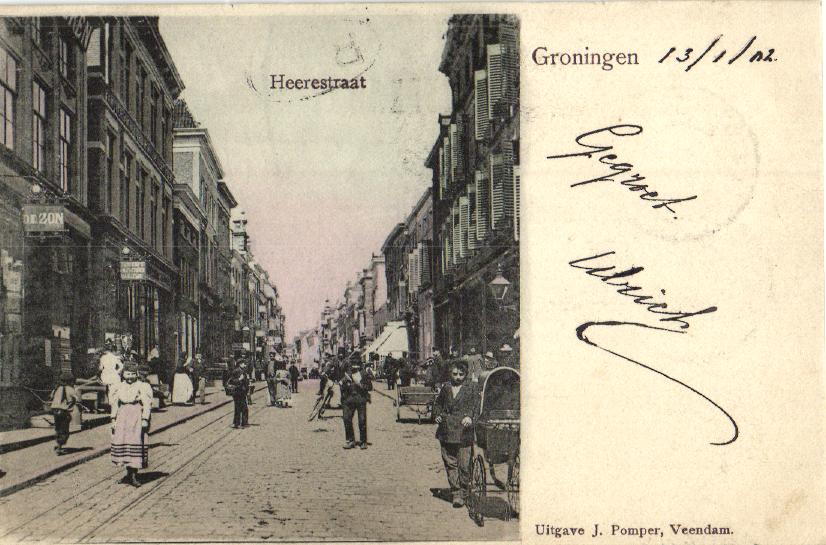 Heerestraat
DE ZON
Groningen 13/1/02.
Gegroet.
Ulrich
Uitgave J. Pomper, Veendam.